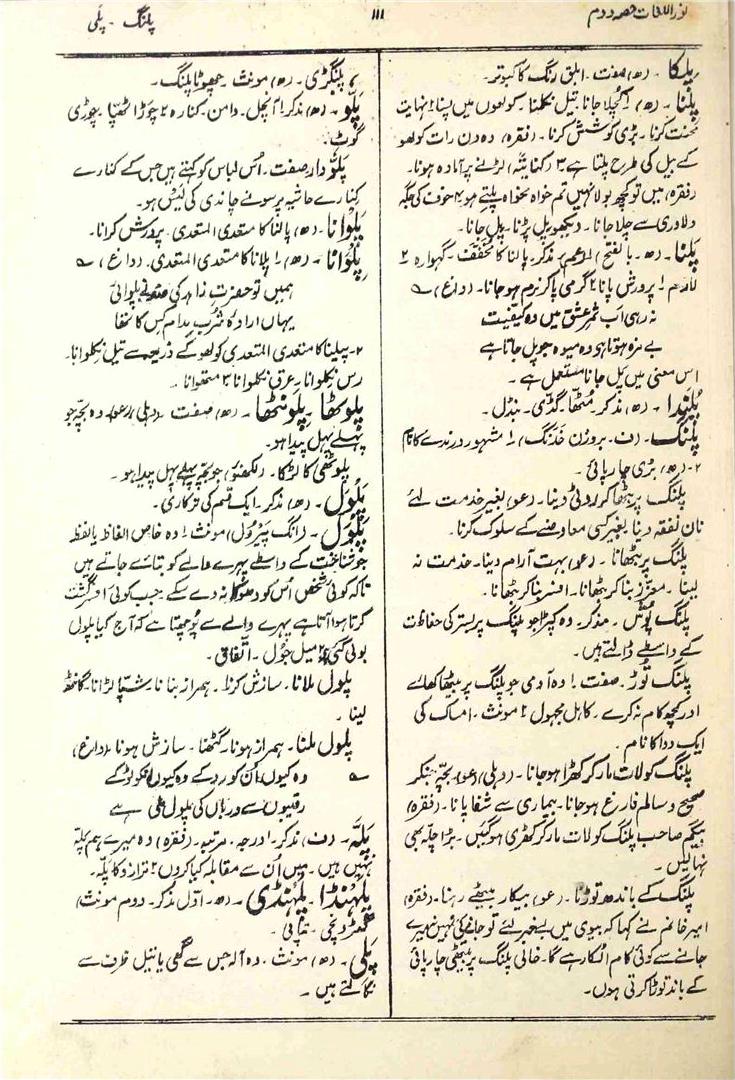 نور اللغات حصہ دوم
۱۱۱
پلنگ ۔ پلی
پلکا ۔ (ھ) صفت ۔ ابلق رنگ کا کبوتر۔
پلنا ۔ (ھ) ۱ کچلا جانا۔ تیل نکلنا۔ کولھوں میں پسنا ۲ نہایت
محنت کرنا۔ بڑی کوشش کرنا۔ (فقرہ) وہ دن رات کولھو
کے بیل کی طرح پلتا ہے ۳ (کنایتہً) لڑنے پر آمادہ ہونا۔
(فقرہ) میں تو کچھ بولا نہیں تم خواہ نخواہ پلتے ہو ۴ خوف کی جگہ
دلاوری سے چلا جانا۔ دیکھو پل پڑنا۔ پل جانا۔
پلنا ۔ (ھ۔ بالفتح) مذکر۔ پالنا کا مخفف۔ گہوارہ ۲
لازم ۱ پرورش پانا ۲ گرمی پا کر نرم ہو جانا۔ (داغ) ؎
نہ رہی اب ثمر عشق میں وہ کیفیت
بے مزہ ہوتا ہی وہ میوہ جو پل جاتا ہے
اس معنی میں پل جانا مستعمل ہے ۔
پلندا ۔ (ھ) مذکر۔ مٹھا۔ گڈی۔ بنڈل ۔
پلنگ ۔ (ف۔ بروزن خدنگ) ۱ مشہور درندے کا نام
۲۔ (ھ) بڑی چارپائی ۔
پلنگ پر بٹھا کر روٹی دینا۔ (عو) بغیر خدمت لئے
نان نفقہ دینا بغیر کسی معاوضے کے سلوک کرنا۔
پلنگ پر بٹھانا ۔ (عو) بہت آرام دینا۔ خدمت نہ
لینا ۔ معزز بنا کر بٹھانا۔ افسر بنا کر بٹھانا۔
پلنگ پوش ۔ مذکر۔ وہ کپڑا جو پلنگ پر بستر کی حفاظت
کے واسطے ڈالتے ہیں۔
پلنگ توڑ۔ صفت۔ ۱ وہ آدمی جو پلنگ پر بیٹھا کھائے
اور کچھ کام نہ کرے ۔ کاہل مجہول ۲ مونث ۔ امساک کی
ایک دوا کا نام ۔
پلنگ کو لات مار کر کھڑا ہو جانا ۔ (دہلی) (عو) بچہ جنکر
صحیح و سالم فارغ ہو جانا۔ بیماری سے شفا پانا ۔ (فقرہ)
بیگم صاحب پلنگ کو لات مار کر کھڑی ہو گئیں ۔ بڑا چلہ بھی
نہا لیں ۔
پلنگ کے باندھ توڑنا ۔ (عو) بیکار بیٹھے رہنا۔ (فقرہ)
امیر خانم نے کہا کہ بیوی میں بسخبر لئے تو جانے کی نہیں نہ میرے
جانے سے کوئی کام اٹکا رہے گا۔ خالی پلنگ پر بیٹھی چارپائی
کے باند توڑا کرتی ہوں۔
پلنگڑی ۔ (ھ) مونث ۔ چھوٹا پلنگ ۔
پلّو ۔ (ھ) مذکر ۱ آنچل ۔ دامن۔ کنارہ ۲ چوڑا ٹھپا ۔ چوڑی
گوٹ ۔
پلّو دار صفت۔ اُس لباس کو کہتے ہیں جس کے کنارے
کنارے حاشیہ پر سونے چاندی کی لیس ہو۔
پلوانا ۔ (ھ) پالنا کا متعدی المتعدی۔ پرورش کرانا۔
پلوانا ۔ (ھ) ۱ پلانا کا متعدی المتعدی۔ (داغ) ؎
ہمیں تو حضرت زاہد کی ضد نے پلوائی
یہاں ارادۂ شرب مدام کس کا تھا
۲۔ پیلنا کا متعدی المتعدی کولھو کے ذریعے سے تیل نکلوانا۔
رس نکلوانا۔ عرق نکلوانا ۳ متھوانا ۔
پلوٹھا ۔ پلونٹھا ۔ (ھ) صفت (دہلی) (عو) وہ بچہ جو
پہلے پہل پیدا ہو۔
پلوٹھی کا لڑکا۔ (لکھنؤ) جو بچہ پہلے پہل پیدا ہو ۔
پلول ۔ (ھ) مذکر۔ ایک قسم کی ترکاری ۔
پلول ۔ (انگ پیرول) مونث ۱ وہ خاص الفاظ یا لفظ
جو شناخت کے واسطے پہرے والے کو بتائے جاتے ہیں
تاکہ کوئی شخص اُس کو دھوکا نہ دے سکے جب کوئی افسر گشت
کرتا ہوا آتا ہے پہرے والے سے پوچھتا ہے کہ آج کیا پلول
بولی گئی ۲ میل جول ۔ اتفاق ۔
پلول ملانا۔ سازش کرنا۔ ہمراز بنانا۔ سپّا لڑانا۔ گانٹھ
لینا ۔
پلول ملنا۔ ہمراز ہونا۔ گٹھنا ۔ سازش ہونا۔ (داغ)
؎ وہ کیوں اُن کو رد کے وہ کیوں انکو ٹوکے
رقیبوں سے درباں کی پلول ملی ہے
پلّہ ۔ (ف) مذکر۔ ۱ درجہ۔ مرتبہ ۔ (فقرہ) وہ میرے ہم پلہ
نہیں ہیں ۔ میں اُن سے مقابلہ کیا کروں ۲ ترازو کا پلّہ۔
پلہنڈا ۔ پلہنڈی ۔ (ھ۔ اوّل مذکر۔ دوم مونث)
گھڑونچی ۔ تپائی ۔
پلی ۔ (ھ) مونث ۔ وہ آلہ جس سے گھی یا تیل ظرف سے
نکالتے ہیں ۔